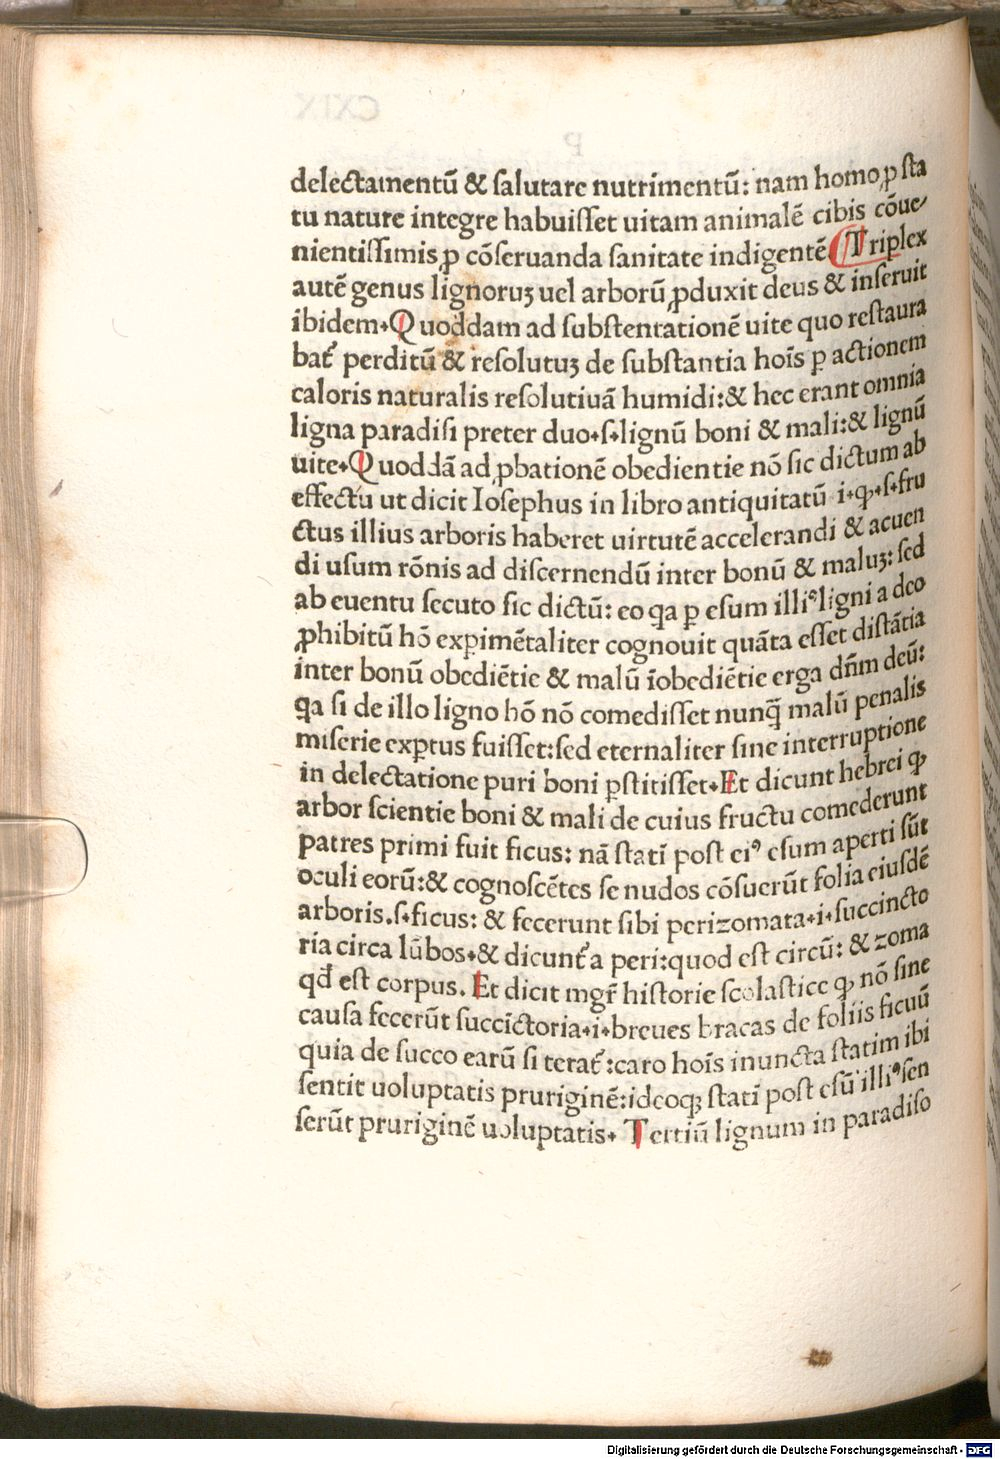 delectamentū & ſalutare nutrimentū: nam homo ꝓ ſta
tu nature integre habuiſſet uitam animalē cibis cōue⸗
nientiſſimis ꝓ cōſeruanda ſanitate indigentē Triplex
autē genus lignoruꝫ uel arborū ꝓduxit deus & inſeruit
ibidem. Quoddam ad ſubſtentationē uite quo reſtaura
bat᷑ perditū & reſolutuꝫ de ſubſtantia hoīs ꝑ actionem
caloris naturalis reſolutiuā humidi: & hec erant omnia
ligna paradiſi preter duo.ſ.lignū boni & mali: & lignū
uite. Quoddā ad ꝓbationē obedientie nō ſic dictum ab
effectu ut dicit Ioſephus in libro antiquitatū .i.ꝙ.ſ.fru
ctus illius arboris haberet uirtutē accelerandi & acuen
di uſum rōnis ad diſcernendū inter bonū & maluꝫ: ſed
ab euentu ſecuto ſic dictū: eo qa ꝑ eſum illiꝰ ligni a deo
ꝓhibitū hō exꝑimētaliter cognouit quāta eſſet diſtātia
inter bonū obediētie & malū īobediētie erga dn̄m deū:
qa ſi de illo ligno hō nō comediſſet nunq̄ malū penalis
miſerie exꝑtus fuiſſet: ſed eternaliter ſine interruptione
in delectatione puri boni ꝑſtitiſſet. Et dicunt hebrei ꝙ
arbor ſcientie boni & mali de cuius fructu comederunt
patres primi fuit ficus: nā ſtatī poſt eiꝰ eſum aperti ſūt
oculi eorū: & cognoſcētes ſe nudos cōſuerūt folia eiuſdē
arboris.ſ.ficus: & fecerunt ſibi perizomata.i.ſuccincto
ria circa lūbos. & dicunt᷑ a peri: quod eſt circū: & zoma
qd̄ eſt corpus. Et dicit mgr̄ hiſtorie ſcolaſtice ꝙ nō ſine
cauſa fecerūt ſuccīctoria.i.breues bracas de foliis ficuū
quia de ſucco earū ſi terat᷑: caro hoīs inuncta ſtatim ibi
ſentit uoluptatis pruriginē: ideoqꝫ ſtatī poſt eſū illiꝰ ſen
ſerūt pruriginē uoluptatis. Tertiū lignum in paradiſo
Digitalisierung gefördert durch die Deutsche Forschungsgemeinschaft - DFG